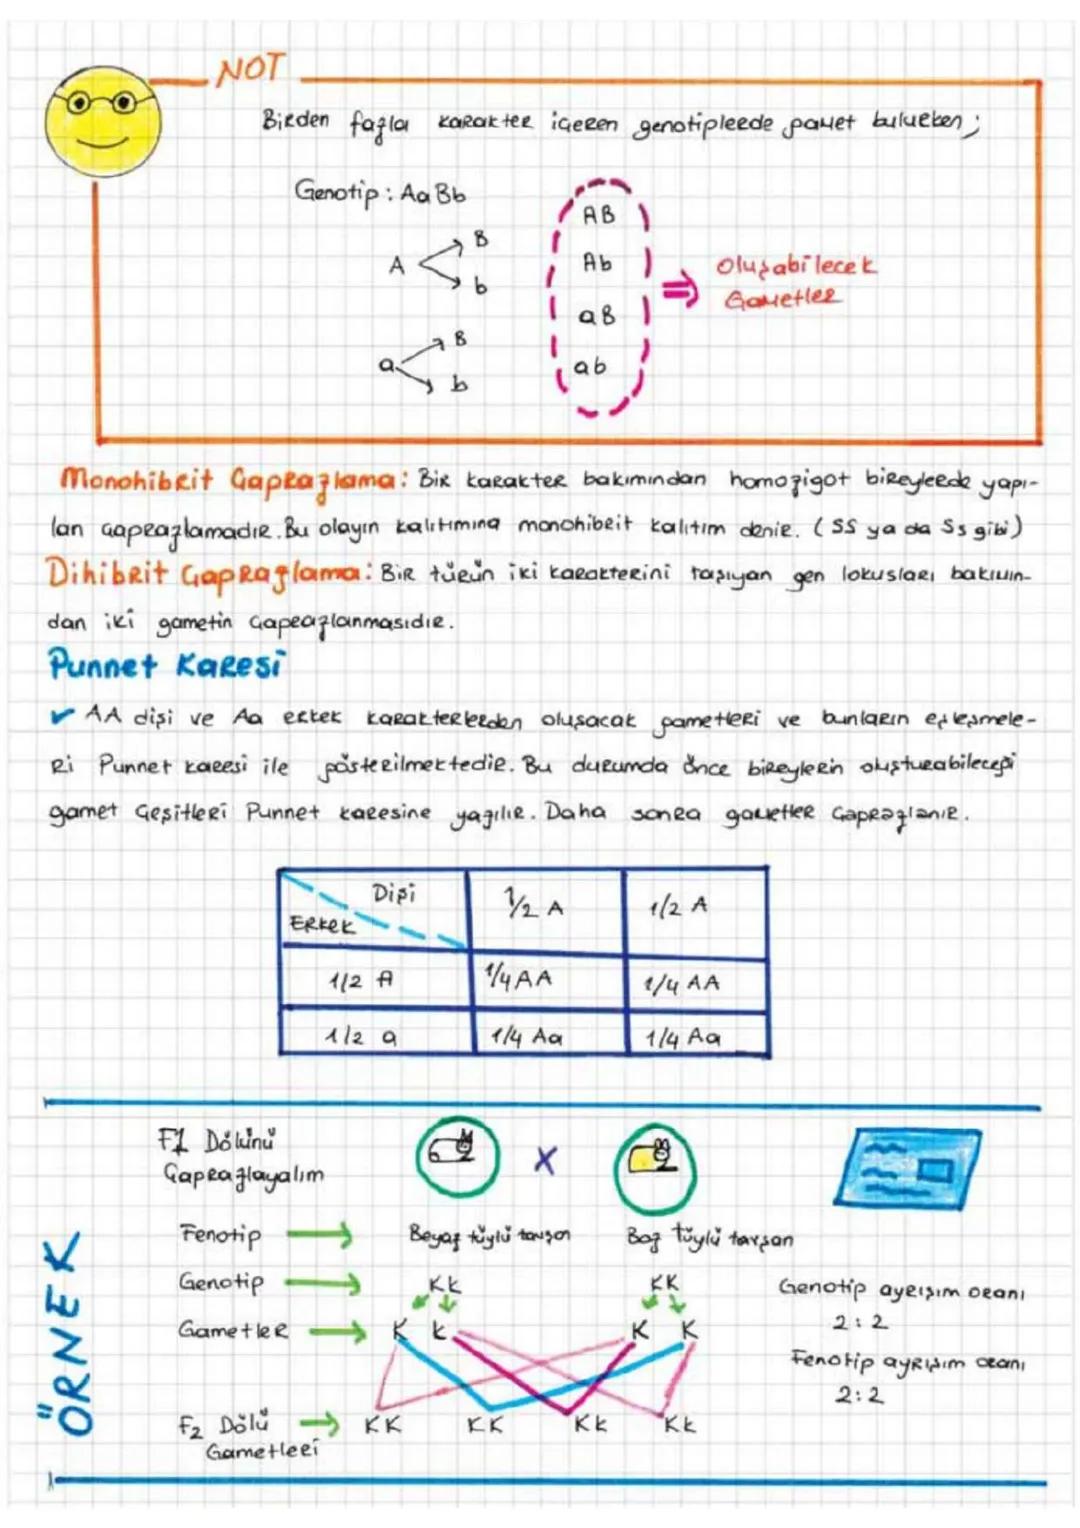 NOT
Birden fazla karakter içeren genotiplerde gamet bulurken;
Genotip: AaBb
A B
b
a B
b
AB
Ab
aB
ab
Oluşabilecek
Gametler
Monohibrit Çaprazlama: Bir karakter bakımından homozigot bireylerde yapı-
lan çaprazlamadır. Bu olayın kalıtımına monohibrit kalıtım denir. (SS ya da Ss gibi)
Dihibrit Çaprazlama: Bir türün iki karakterini taşıyan gen lokusları bakımın-
dan iki gametin çaprazlanmasıdır.
Punnet Karesi
✓ AA dişi ve Aa erkek karakterlerden oluşacak gametleri ve bunların eşleşmele-
ri Punnet karesi ile gösterilmektedir. Bu durumda önce bireylerin oluşturabileceği
gamet çeşitleri Punnet karesine yazılır. Daha sonra gametler çaprazlanır.
Dişi
Erkek
1/2 A 1/2 A
1/2 A 1/4 AA 1/4 AA
1/2 a 1/4 Aa 1/4 Aa
ÖRNEK
F1 Dölünü
Çaprazlayalım
X
Fenotip Beyaz tüylü tavşan Boz tüylü tavşan
Genotip Kk KK
Gametler K k K K
F2 Dölü KK KK Kk Kk
Gametleri
Genotip ayrışım oranı
2:2
Fenotip ayrışım oranı
2:2